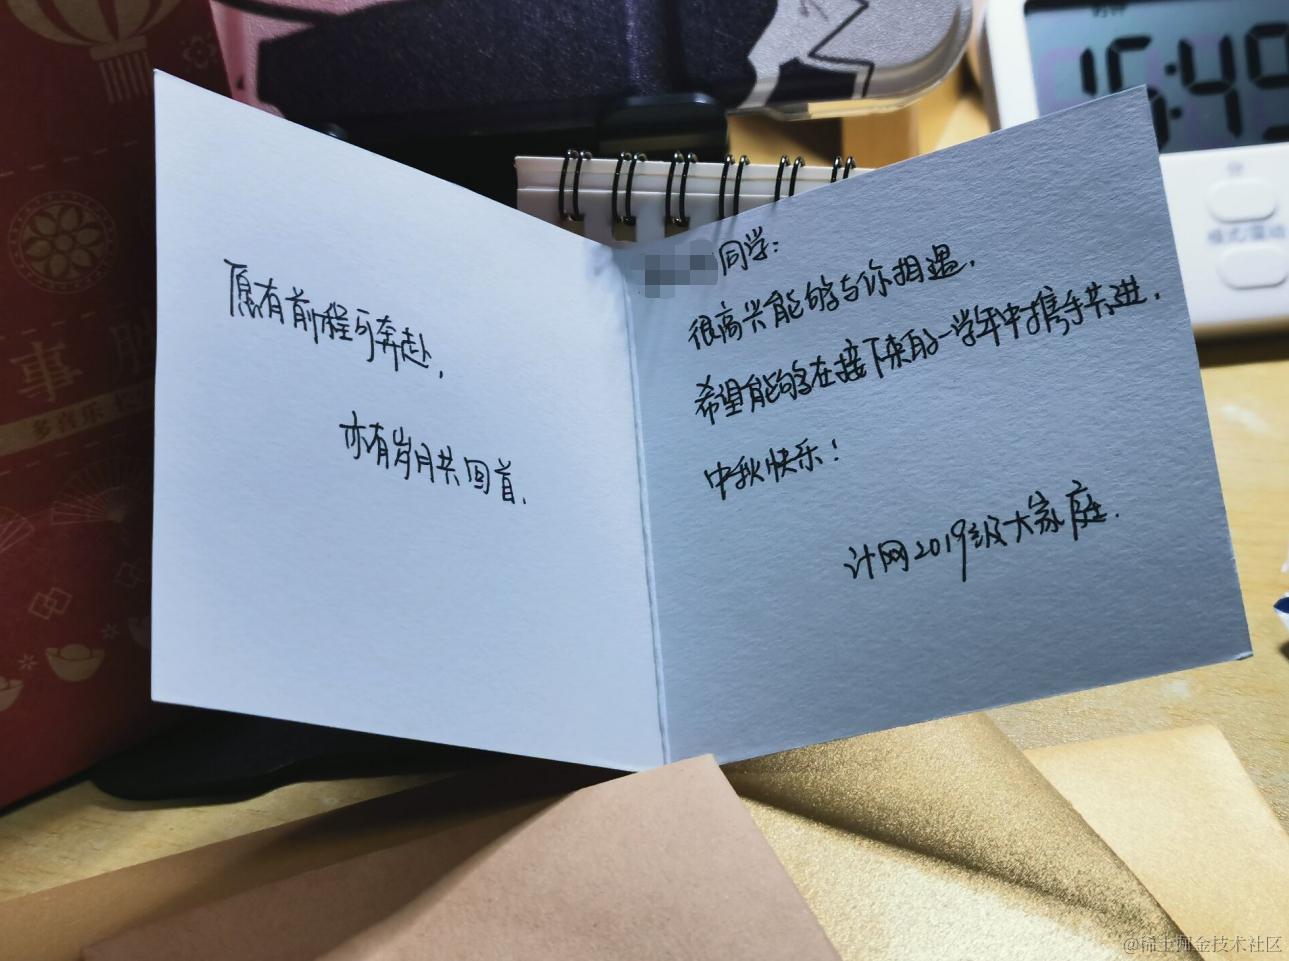 愿有前程可奔赴,
亦有岁月共回首.
同学:
很高兴能够与你相遇.
希望能够在接下来的一学年中携手共进.
中秋快乐!
计网2019级大家庭.
16:49
分
格式/震动
事
多喜乐
@稀土掘金技术社区